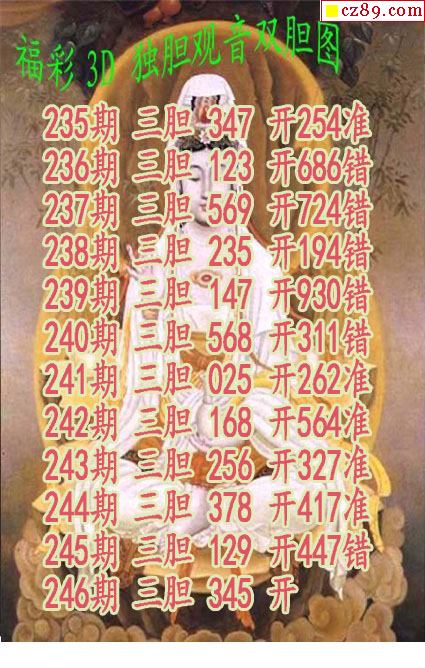 cz89.com
福彩 3D 独胆观音双胆图
235期 三胆 347 开254准
236期 三胆 123 开686错
237期 三胆 569 开724错
238期 三胆 235 开194错
239期 三胆 147 开930错
240期 三胆 568 开311错
241期 三胆 025 开262准
242期 三胆 168 开564准
243期 三胆 256 开327准
244期 三胆 378 开417准
245期 三胆 129 开447错
246期 三胆 345 开